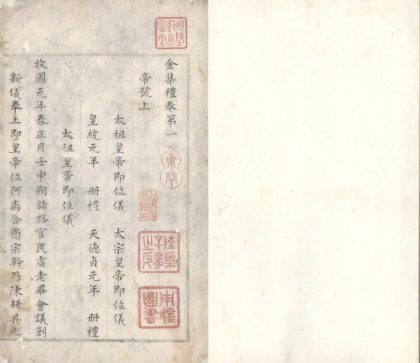 金集禮卷第一
帝號上
太祖皇帝即位儀　太宗皇帝即位儀
皇統元年　冊禮　天德貞元年　冊禮
太祖皇帝即位儀
收國元年春正月壬申朔諸路官民耆老畢會議創
新儀奉上即皇帝位阿离合懣宗幹乃陳耕具九